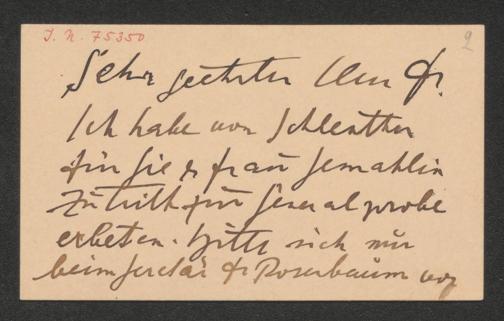 J. N. 75350
2
Sehr geehrter Herr Dr.
Ich habe von Schlenther
für Sie & Frau Gemahlin
Zutritt zur Generalprobe
erbeten. Bitte sich nur
beim Sekretär Dr Rosenbaum